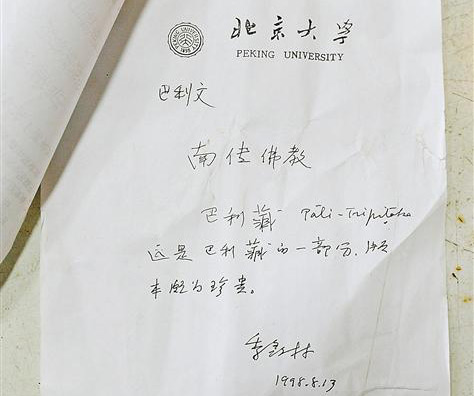 北京大學
PEKING UNIVERSITY
PEKING UNIVERSITY
1898
巴利文
南传佛教
巴利藏 Pāli-Tripiṭaka
这是巴利藏的一部分,版
本颇为珍贵。
季羡林
1998.8.13